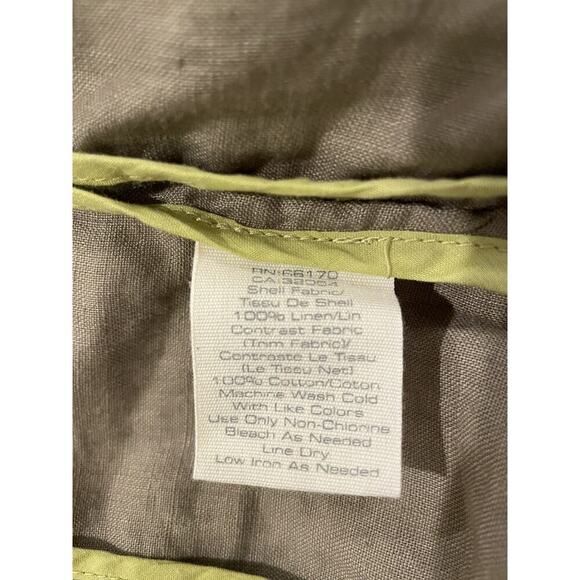 RN:66170
CA:32564
Shell Fabric/
Tissu De Shell
100% Linen/Lin
Contrast Fabric
(Trim Fabric)/
Contraste Le Tissu
(Le Tissu Net)
100% Cotton/Coton
Machine Wash Cold
With Like Colors
Use Only Non-Chlorine
Bleach As Needed
Line Dry
Low Iron As Needed